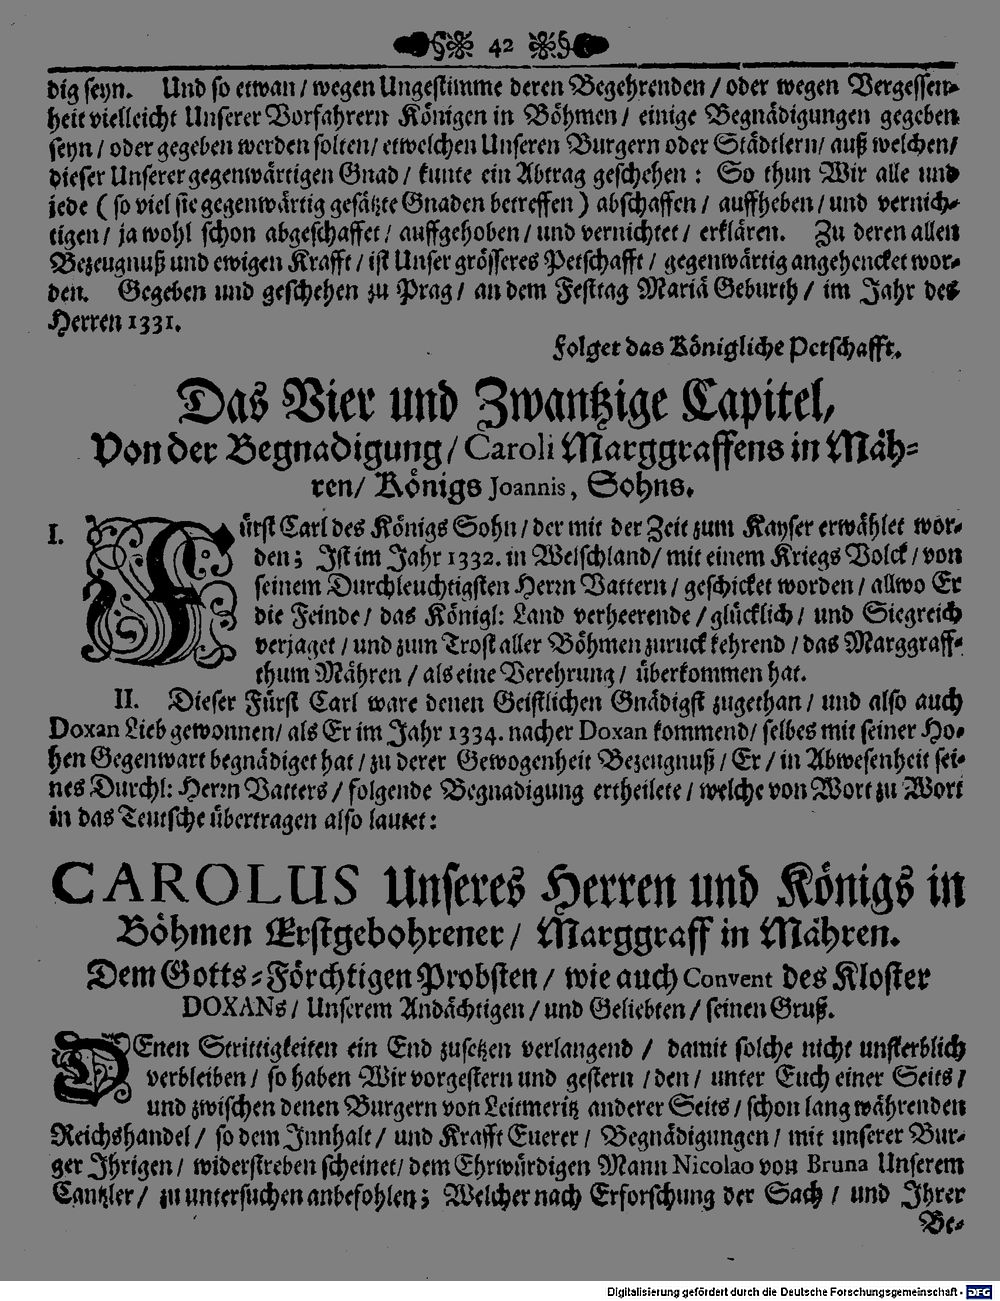 42
dig seyn. Und so etwan / wegen Ungestimme deren Begehrenden / oder wegen Vergessen-
heit vielleicht Unserer Vorfahrern Königen in Böhmen / einige Begnädigungen gegeben
seyn / oder gegeben werden solten / etwelchen Unseren Burgern oder Städtlern / auß welchen /
dieser Unserer gegenwärtigen Gnad / kunte ein Abtrag geschehen : So thun Wir alle und
jede ( so viel sie gegenwärtig gesätzte Gnaden betreffen ) abschaffen / auffheben / und vernich-
tigen / ja wohl schon abgeschaffet / auffgehoben / und vernichtet / erklären. Zu deren allen
Bezeugnuß und ewigen Krafft / ist Unser grösseres Petschafft / gegenwärtig angehencket wor-
den. Gegeben und geschehen zu Prag / an dem Festtag Mariä Geburth / im Jahr des
Herren 1331.
Folget das Königliche Petschafft.
Das Vier und Zwantzige Capitel,
Von der Begnadigung / Caroli Marggraffens in Mäh-
ren / Königs Joannis, Sohns.
I. Fürst Carl des Königs Sohn / der mit der Zeit zum Kayser erwählet wor-
den ; Ist im Jahr 1332. in Welschland / mit einem Kriegs Volck / von
seinem Durchleuchtigsten Herrn Vattern / geschicket worden / allwo Er
die Feinde / das Königl: Land verheerende / glücklich / und Siegreich
verjaget / und zum Trost aller Böhmen zuruck kehrend / das Marggraff-
thum Mähren / als eine Verehrung / überkommen hat.
II. Dieser Fürst Carl ware denen Geistlichen Gnädigst zugethan / und also auch
Doxan Lieb gewonnen / als Er im Jahr 1334. nacher Doxan kommend / selbes mit seiner Ho-
hen Gegenwart begnädiget hat / zu derer Gewogenheit Bezeugnuß / Er / in Abwesenheit sei-
nes Durchl: Herrn Vatters / folgende Begnadigung ertheilete / welche von Wort zu Wort
in das Teutsche übertragen also lautet :
CAROLUS Unseres Herren und Königs in
Böhmen Erstgebohrener / Marggraff in Mähren.
Dem Gotts-Förchtigen Probsten / wie auch Convent des Kloster
DOXANs / Unserem Andächtigen / und Geliebten / seinen Gruß.
DEnen Strittigkeiten ein End zusetzen verlangend / damit solche nicht unsterblich
verbleiben / so haben Wir vorgestern und gestern / den / unter Euch einer Seits /
und zwischen denen Burgern von Leitmeritz anderer Seits / schon lang währenden
Reichshandel / so dem Innhalt / und Krafft Euerer / Begnädigungen / mit unserer Bur-
ger Ihrigen / widerstreben scheinet / dem Ehrwürdigen Mann Nicolao von Bruna Unserem
Cantzler / zu untersuchen anbefohlen ; Welcher nach Erforschung der Sach / und Ihrer
Be-
Digitalisierung gefördert durch die Deutsche Forschungsgemeinschaft - DFG